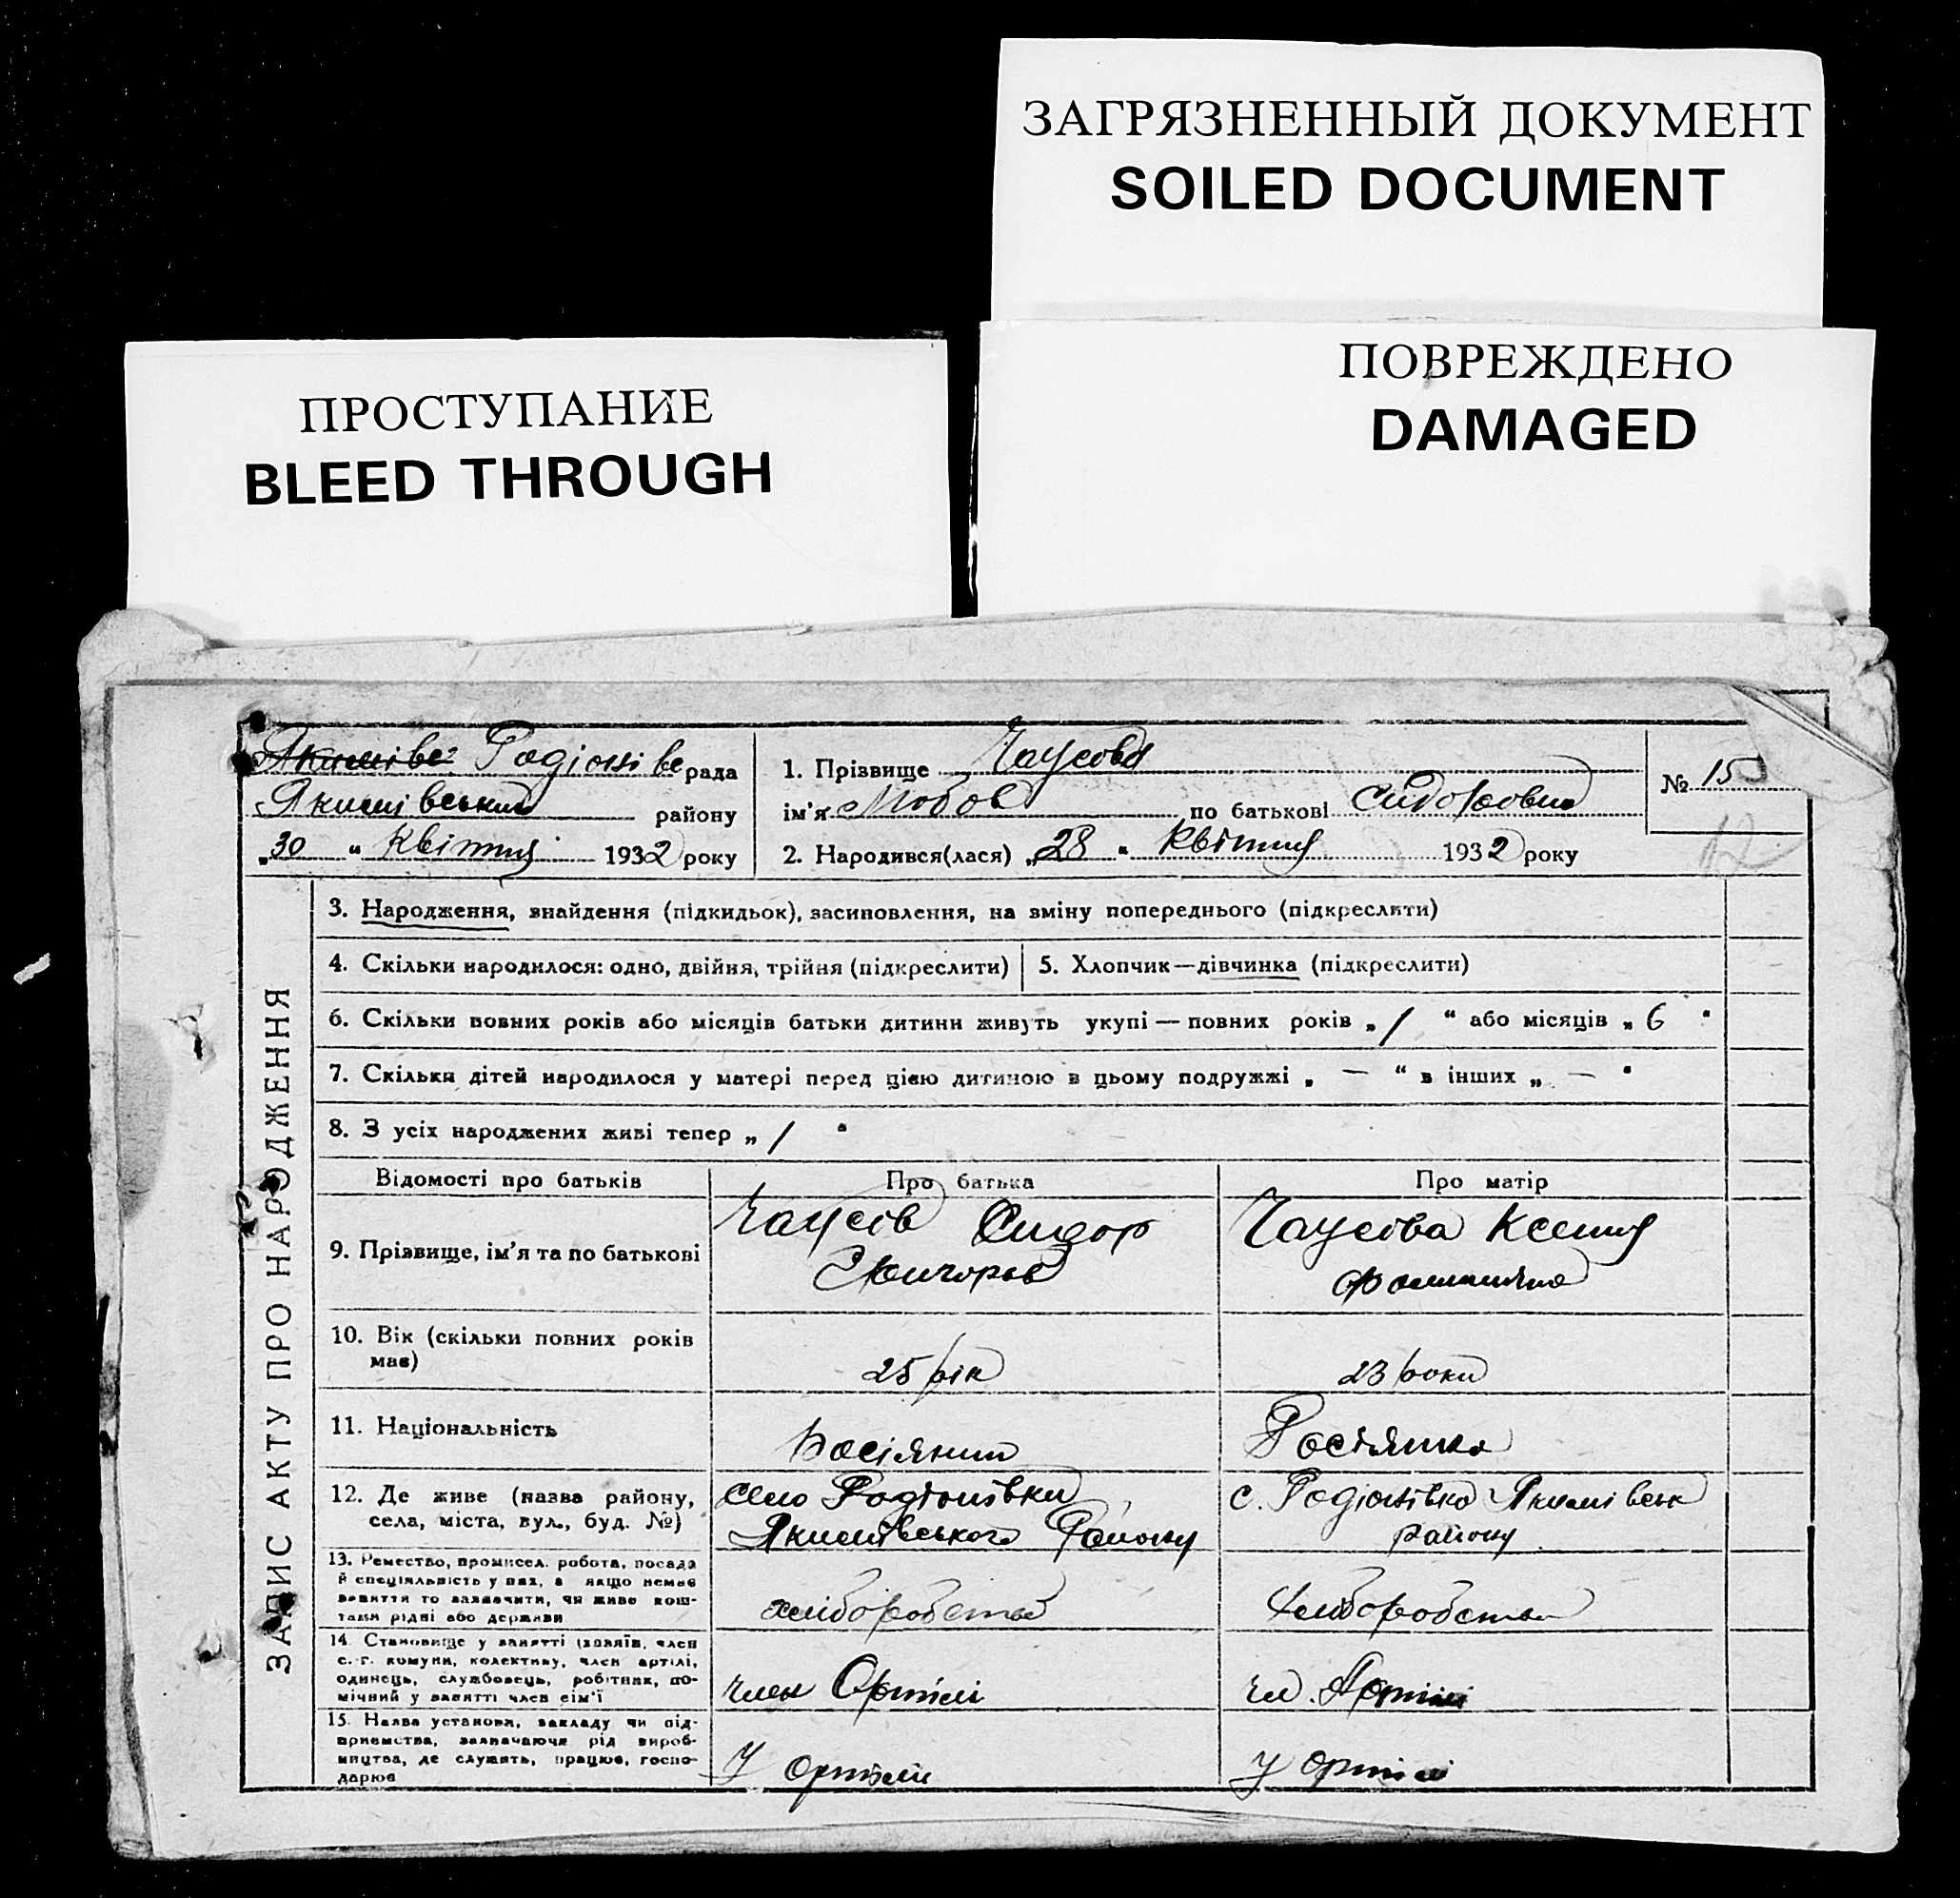 ЗАГРЯЗНЕННЫЙ ДОКУМЕНТ
SOILED DOCUMENT
ПОВРЕЖДЕНО
DAMAGED
ПРОСТУПАНИЕ
BLEED THROUGH
Родіонівс рада
Якимівський району
„30 “ Квітня 1932 року
1. Прізвище Чаусова
ім'я Любов по батькові Сидоровна
2. Народився(лася) „28 “ Квітня 1932 року
№ 15
ЗАПИС АКТУ ПРО НАРОДЖЕННЯ
3. Народження, знайдення (підкидьок), засиновлення, на зміну попереднього (підкреслити)
4. Скільки народилося: одно, двійня, трійня (підкреслити)
5. Хлопчик—дівчинка (підкреслити)
6. Скільки повних років або місяців батьки дитини живуть укупі — повних років „ 1 “ або місяців „ 6 “
7. Скільки дітей народилося у матері перед цією дитиною в цьому подружжі „ — “ в інших „ — “
8. З усіх народжених живі тепер „ 1 “
Відомості про батьків Про батька Про матір
9. Прізвище, ім'я та по батькові
Чаусів Сидор
Чаусова Ксения
10. Вік (скільки повних років має)
25 рік
23 роки
11. Національність
Росіянин
Росіянка
12. Де живе (назва району, села, міста, вул., буд. №)
село Родіонівка
Якимівського Району
с. Родіонівка Якимівськ
району
13. Ремество, промисел. робота, посада
й спеціяльність у них, а якщо немає
заняття то зазначити, чи живе кош-
тами рідні або держави
хліборобства
Хліборобства
14. Становище у занятті (хазяїн, член
с.-г. комуни, колективу, член артілі,
одинець, службовець, робітник, по-
мічний у занятті член сім'ї
член Ортілі
чл. Артілі
15. Назва установи, закладу чи під-
приємства, зазначаючи рід вироб-
ництва, де служить, працює, госпо-
дарює
У ортілі
У ортілі